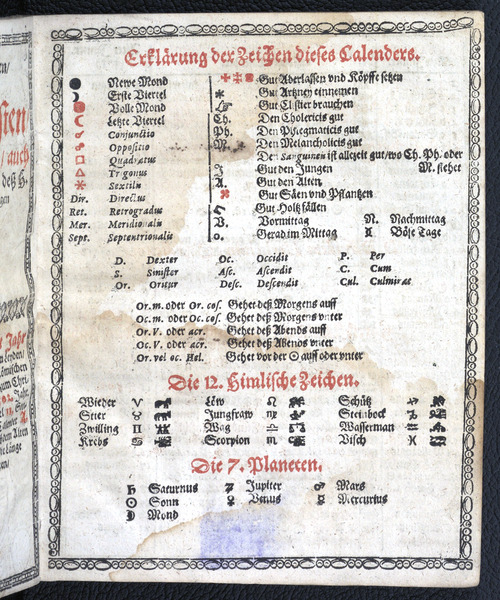 Erklärung der Zeichen dieses Calenders.
Newe Mond
Erste Viertel
Volle Mond
Letzte Viertel
Conjunctio
Oppositio
Quadratus
Trigonus
Sextilis
Dir. Directus
Ret. Retrogradus
Mer. Meridionalis
Sept. Septentrionalis
Gut Aderlassen vnd Köpffe setzen
Gut Artzney einnemen
Gut Clistier brauchen
Ch. Den Cholericis gut
Ph. Den Phlegmaticis gut
M. Den Melancholicis gut
Den Sanguineis ist allezeit gut/wo Ch. Ph. oder
M. stehet
J Gut den Jungen
A. Gut den Alten
Gut Säen vnd Pflantzen
Gut Holtz fällen
V. Vormittag N. Nachmittag
o. Gerad im Mittag Böse Tage
D. Dexter Oc. Occidit P. Per
S. Sinister Asc. Ascendit C. Cum
Or. Oritur Desc. Descendit Cul. Culminat
Or. m. oder Or. cos. Gehet deß Morgens auff
Oc. m. oder Oc. cos. Gehet deß Morgens vnter
Or. V. oder acr. Gehet deß Abends auff
Oc. V. oder acr. Gehet deß Abends vnter
Or. vel oc. Hel. Gehet vor der ☉ auff oder vnter
Die 12. Himlische Zeichen.
Wieder ♈ Löw ♌ Schütz ♐
Stier ♉ Jungfraw ♍ Steinbock ♑
Zwilling ♊ Wag ♎ Wasserman ♒
Krebs ♋ Scorpion ♏ Visch ♓
Die 7. Planeten.
♄ Saturnus ♃ Jupiter ♂ Mars
☉ Sonn ♀ Venus ☿ Mercurius
☽ Mond